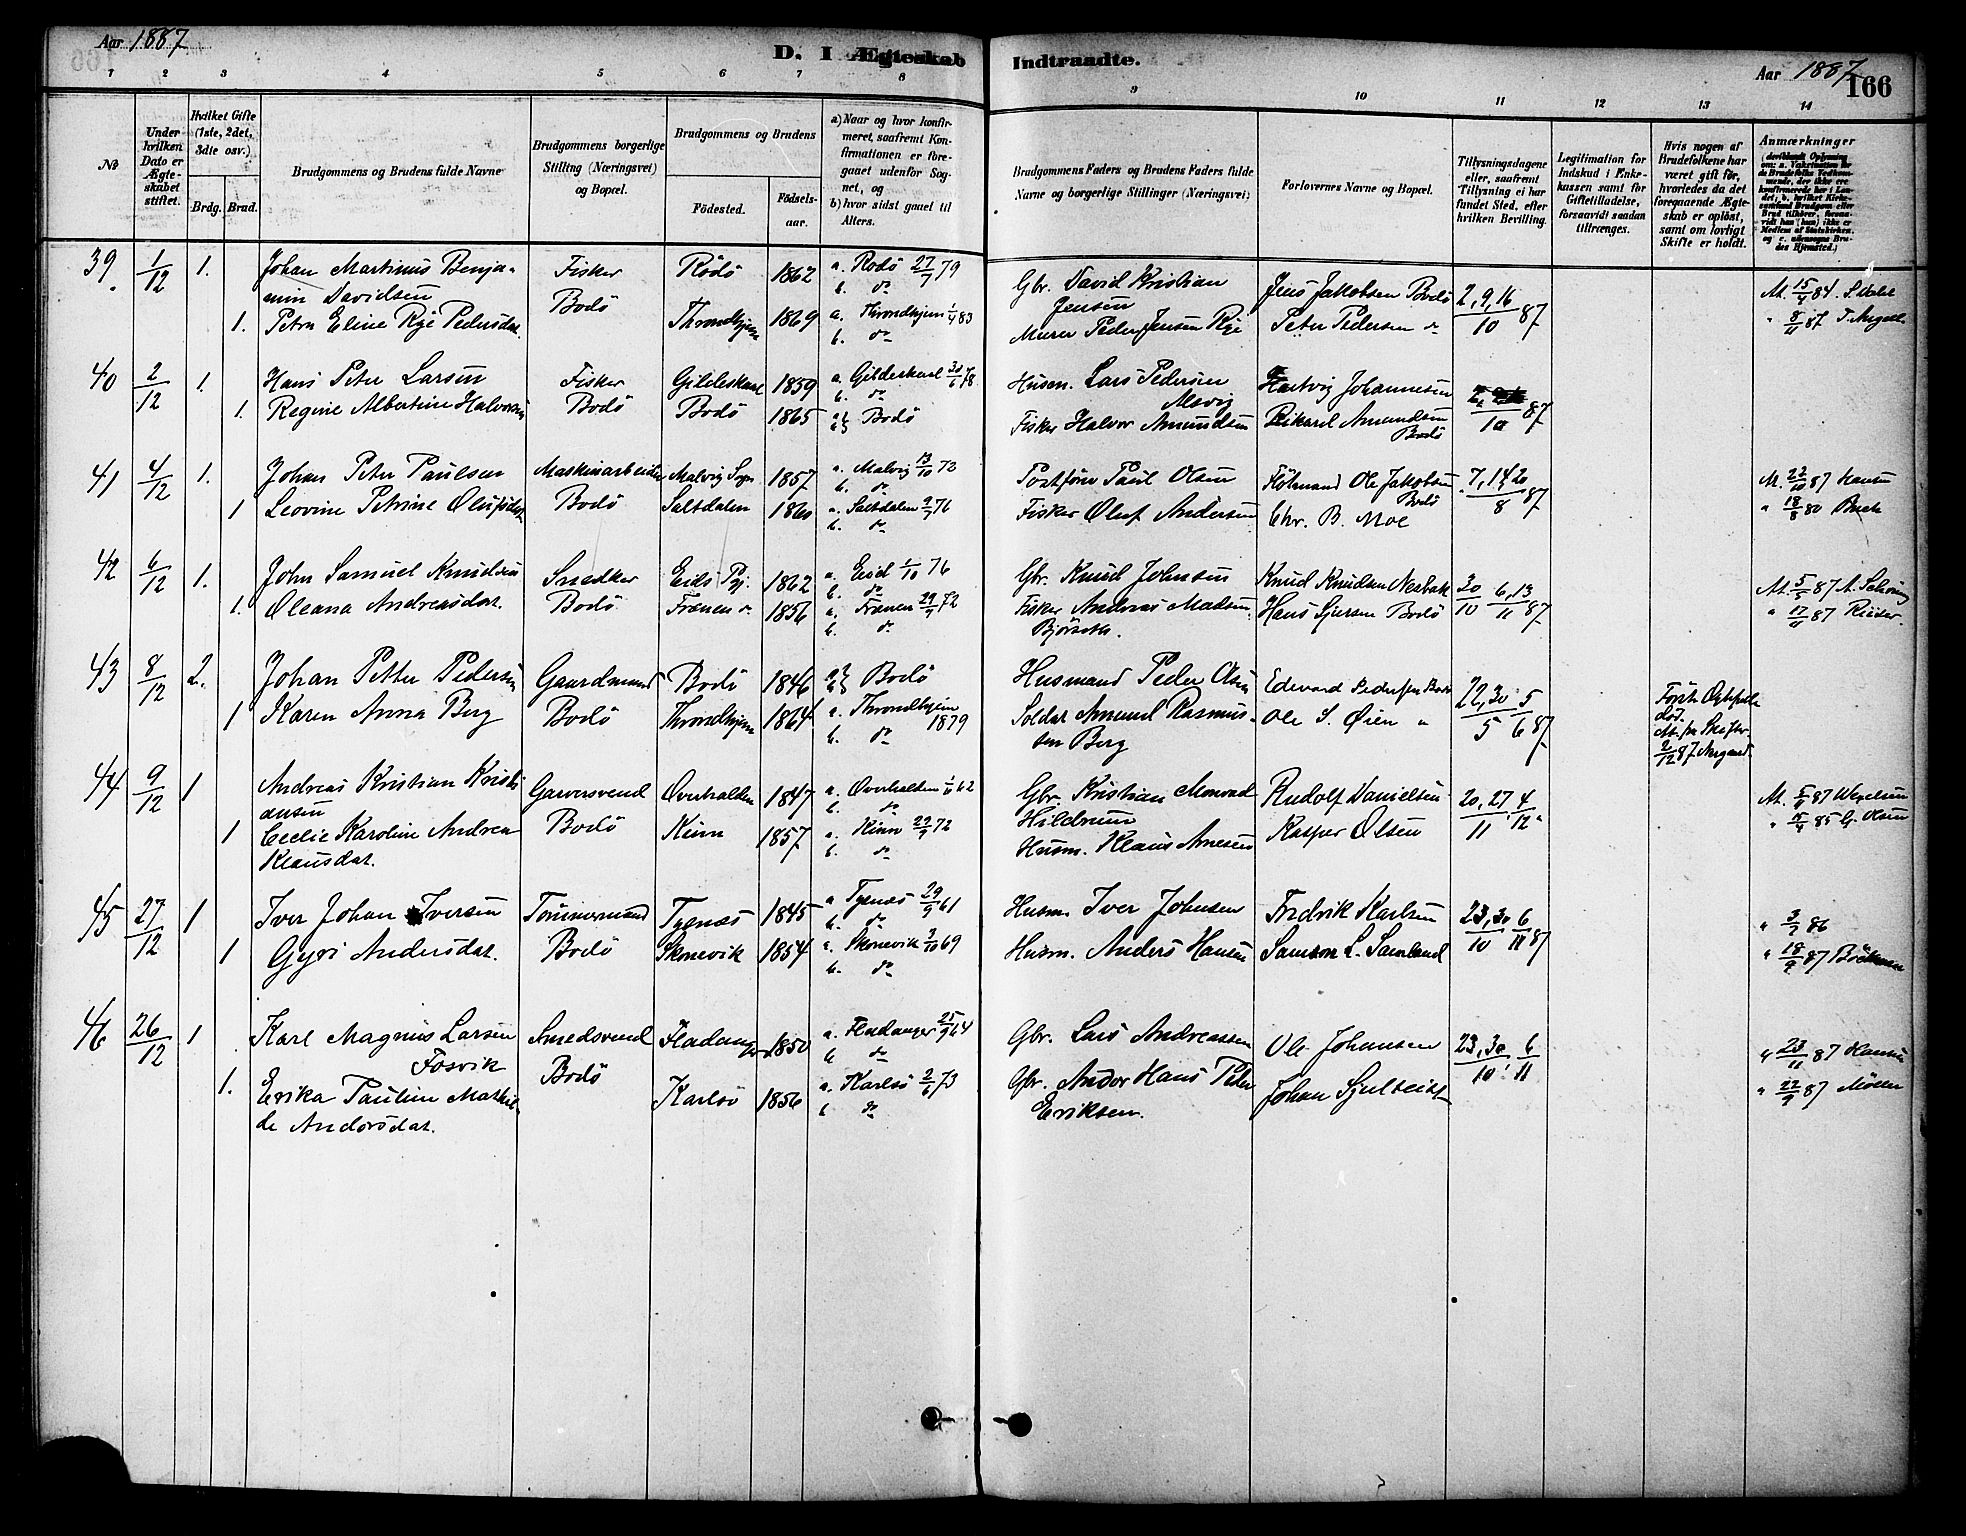 Aar 1887
D. I Ægteskab Indtraadte.
Aar 1887
166
1 2 3 4 5 6 7 8 9 10 11 12 13 14
No
Under hvilken Dato er Ægteskabet stiftet.
Hvilket Gifte (1ste, 2det, 3die osv.)
Brdg. Brud.
Brudgommens og Brudens fulde Navne
Brudgommens borgerlige Stilling (Næringsvei) og Bopæl.
Brudgommens og Brudens
Födested.
Födselsaar.
a) Naar og hvor konfirmeret, saafremt Konfirmationen er foregaaet udenfor Sognet, og
b) hvor sidst gaaet til Alters.
Brudgommens Faders og Brudens Faders fulde Navne og borgerlige Stillinger (Næringsvei)
Forlovernes Navne og Bopæl.
Tillysningsdagene eller, saafremt Tillysning ei har fundet Sted, efter hvilken Bevilling.
Legitimation for Indskud i Enkekassen samt for Giftetilladelse, forsaavidt saadan tiltrænges.
Hvis nogen af Brudefolkene har været gift før, hvorledes da det foregaaende Ægteskab er oplöst, samt om lovligt Skifte er holdt.
Anmærkninger
39 1/12 1. Johan Martinus Benjamin Davidsen Fisker Bodö Rödö 1862 a. Rödö 27/7 79 b. do Gbr. David Kristian Jensen Jens Jakobsen Bodö 2, 9, 16/10 87 At. 15/4 84
1. Petra Eline Rye Pedersdat. Throndhjem 1869 a. Throndhjem 1/4 83 b. do Murer Peder Jensen Rye Peter Pedersen do " 8/11 87
40 2/12 1. Hans Peter Larsen Fisker Bodö Gildeskaal 1859 a. Gildeskaal 30/6 78 b. do Husm. Lars Pedersen Hartvig Johannesen /10 87
1. Regine Albertine Halvorsen Bodö 1865 a b Bodö Fisker Halvor Amundsen Rikard Amundsen Bodö
41 4/12 1. Johan Peter Paulsen Maskinarbeider Bodö Malvig Sogn 1857 a. Malvig 13/10 72 b. do Postförer Paul Olsen Ole Jakobsen Bodö 7, 14, 20/8 87 At. 22/10 87 Hansen
1 Leovine Petrine Olufsdat. Saltdalen 1860 a. Saltdalen 9/7 76 b. do Fisker Oluf Andersen Chr. B. Moe " 18/8 80
42 6/12 1. John Samuel Knudsen Snedker Bodö Eids Pgj. 1862 a. Eid 1/10 76 b. do Gbr. Knud Johnsen Knud Knudsen Nesbak 30/10 6, 13/11 87 At. 5/5 87
1. Oleana Andreasdat. Frænen do 1856 a. Frænen 29/9 72 b. do Fisker Andreas Madsen Björseth. Hans Bodö " 17/11 87
43 8/12 2. Johan Petter Pedersen Gaardmand Bodö Bodö 1846 a b Bodö Husmand Peder Olsen Edevard Pedersen Bodö 22, 30/5 5/6 87
1 Karen Anna Berg Throndhjem 1864 a. Throndhjem 1879 b. do Soldat Amund Rasmussen Berg Ole S. Øien " 2/12 87
44 9/12 1 Andreas Kristian Kristiansen Garversvend Bodö Overhalden 1847 a. Overhalden 1/6 62 b. do Gbr. Kristian Monrad Hildrum Rudolf Danielsen 20, 27/11 4/12 " At. 5/9 87 Wexelsen
1 Cecilie Karoline Andrea Klausdat. Kinn 1857 a. Kinn 29/9 72 b. do Husm. Klaus Arnesen Kasper Olsen " 15/4 85 G. Olsen
45 27/12 1 Iver Johan Iversen Tömmermand Bodö Tysnæs 1845 a Tysnæs 29/9 61 b. do Husm. Iver Johnsen Fredrik Karlsen 23, 30/10 6/11 87 " 3/7 86
1 Gyri Andersdat. Skonevik 1854 a. Skonevik 3/10 69 b. do Husm. Anders Hansen Samson L. Samland " 18/9 87
46 26/12 1 Karl Magnus Larsen Fosvik Smedsvend Bodö Fladanger 1850 a. Fladanger 25/9 64 b do Gbr. Lars Andreassen Ole Johansen 23, 30/10 6/11 " 23/11 87 Hansen
1. Erika Pauline Mathilde Andorsdat. Karlsö 1856 a. Karlsö 2/6 73 b do Gbr. Andor Hans Peder Eriksen. Johan " 22/9 87 Möller